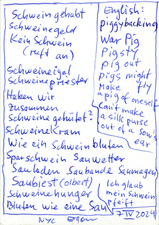 Schwein gehabt
Schweinegeld
(Kein Schwein
ruft an)
Schweineigel
Schweinepriester
Haben wir
zusammen
Schweine gehütet?
Schweinekram
Wie ein Schwein bluten
Sparschwein Sauwetter
Sauladen Saubande Saumagen
Saubiest (Olbert)
Schweinehunger
Bluten wie eine Sau
NYC
English:
piggybacking
War Pig
Pigsty
pig out
pigs might fly
Make
a pig of oneself
Can't make
a silk purse
out of a sow's
ear
Ich glaub
mein Schwein
pfeift
17 IV 2024